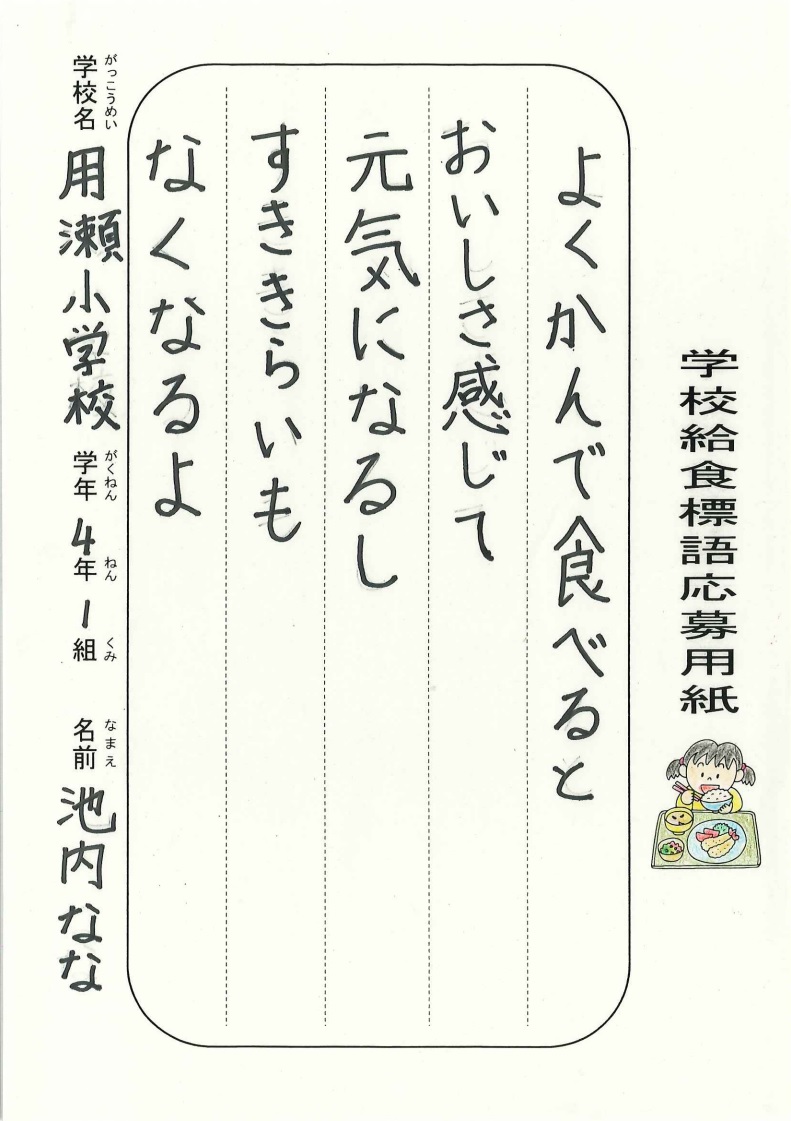 学校給食標語応募用紙
よくかんで食べると
おいしさ感じて
元気になるし
すききらいも
なくなるよ
学校名 用瀬小学校 学年 4年 1組 名前 池内なな
がっこうめい がくねん ねん くみ なまえ